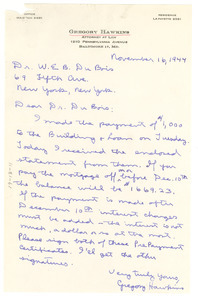 GREGORY HAWKINS
ATTORNEY AT LAW
1210 PENNSYLVANIA AVENUE
BALTIMORE 17, MD.
November 16, 1944
Dr. W. E. B. Du Bois
69 Fifth Ave.
New York, New York.
Dear Dr. Du Bois:
I made the payment of $1,000
to the Building & Loan on Tuesday.
Today I received the enclosed
statement from them. If you
pay the mortgage off before Dec. 10th
the balance will be $1669.23.
If the payment is made after
December 10th interest charges
must be added - the interest is not
much, a dollar or so at the most.
Please sign both of these Pre Payment
Certificates. I'll get the other
signatures.
Very truly yours,
Gregory Hawkins